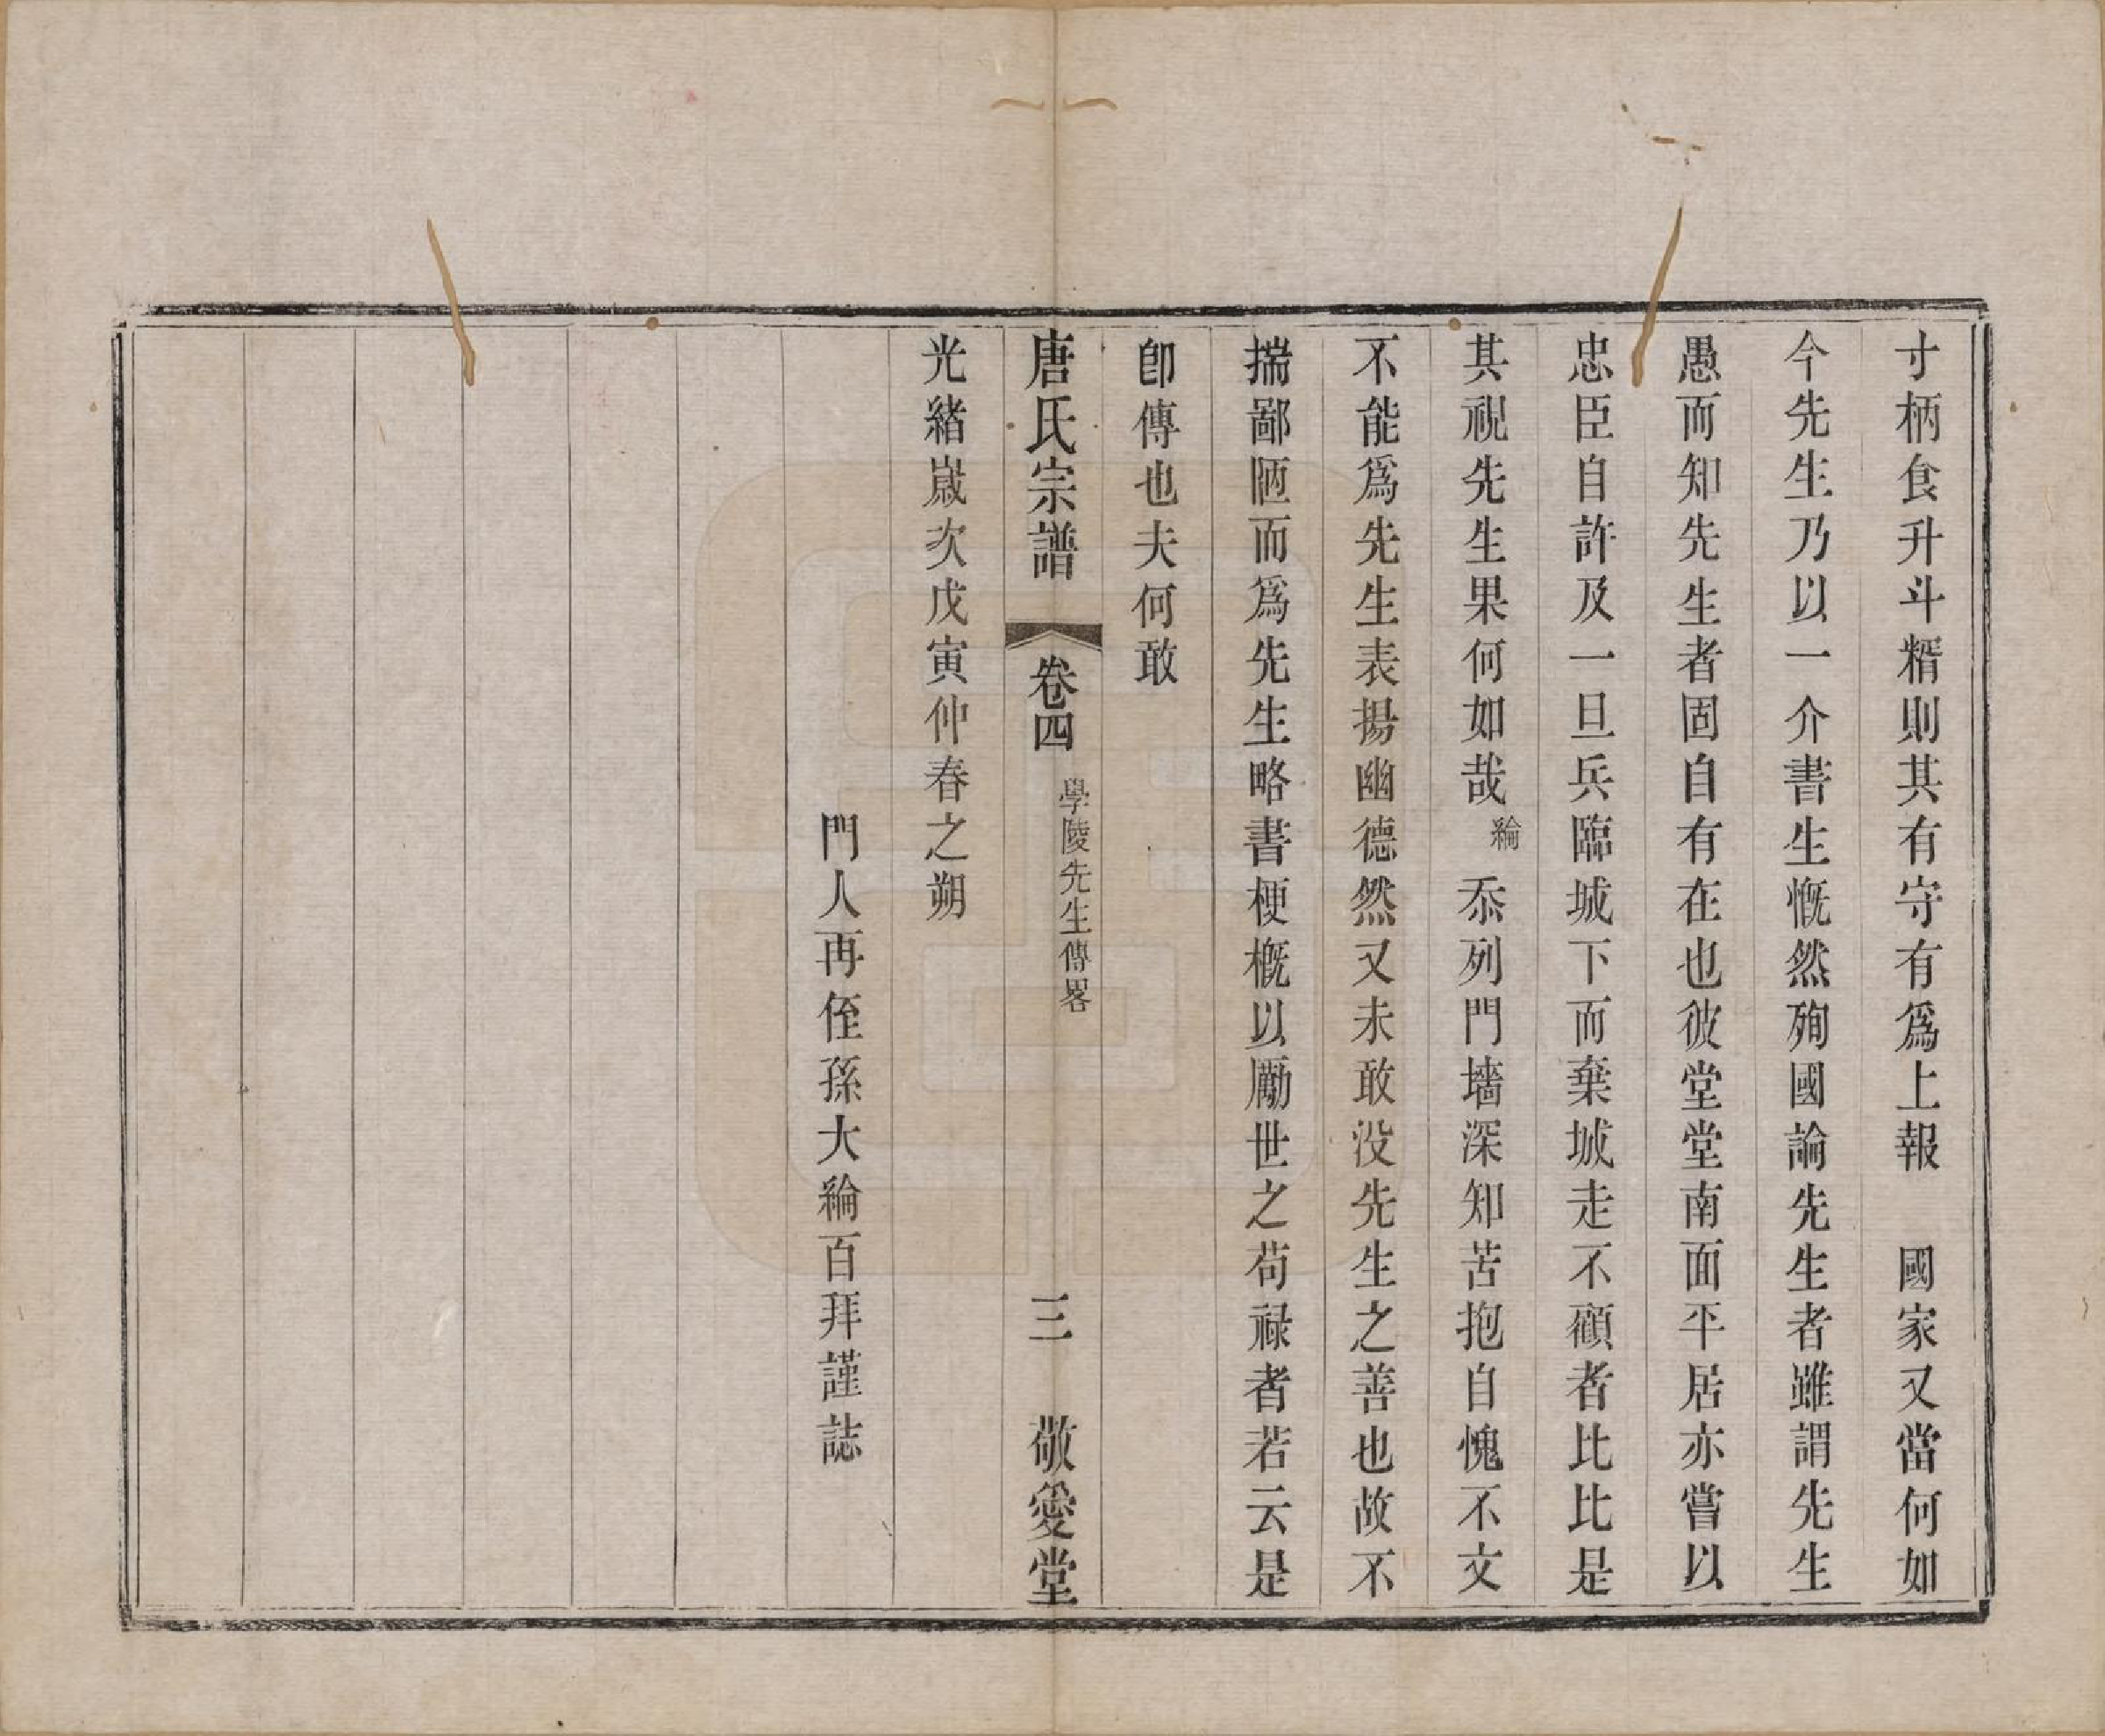 寸柄食升斗糈則其有守有爲上報　國家又當何如
今先生乃以一介書生慨然殉國論先生者雖謂先生
愚而知先生者固自有在也彼堂堂南面平居亦嘗以
忠臣自許及一旦兵臨城下而棄城走不顧者比比是
其視先生果何如哉綸忝列門墻深知苦抱自愧不文
不能爲先生表揚幽德然又未敢没先生之善也故不
揣鄙陋而爲先生略書梗槪以勵世之苟祿者若云是
卽傳也夫何敢
唐氏宗譜　卷四　學陵先生傳畧　三　敬愛堂
光緒歲次戊寅仲春之朔
門人再侄孫大綸百拜謹誌